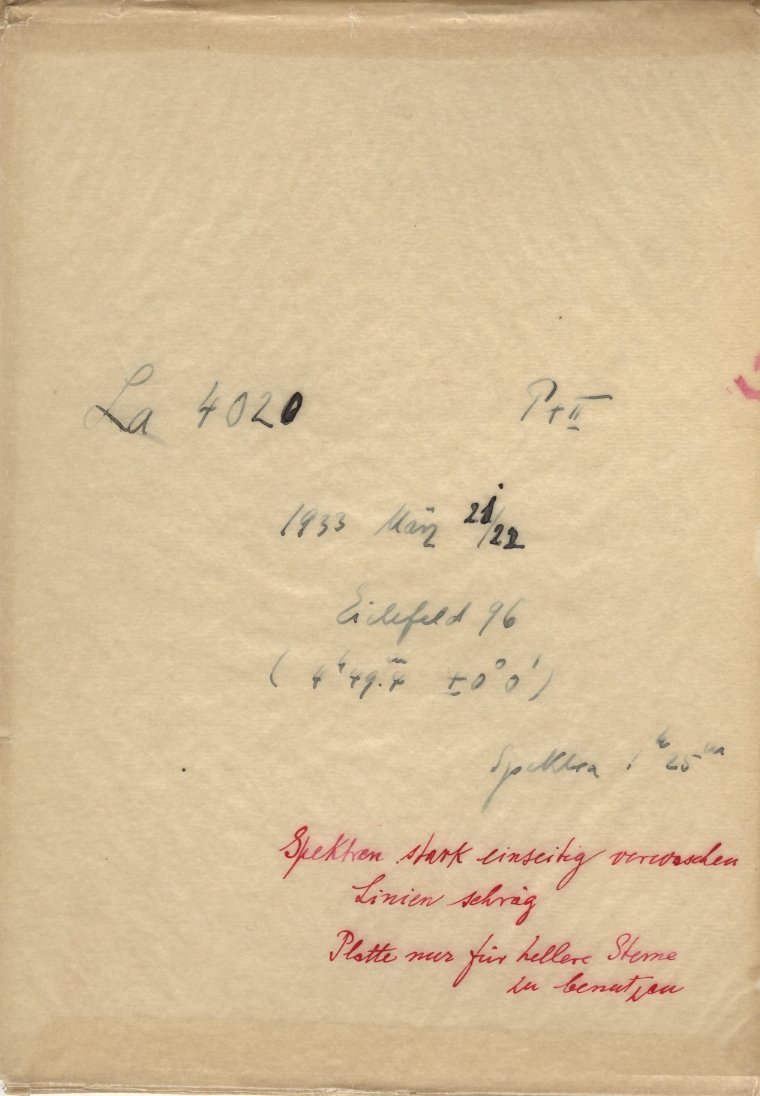 La 4020 P+II
1933 März 21/22
Eichfeld 96
( 4ʰ 49.ᵐ4 ±0° 0' )
Spektra 1ʰ 25ᵐ
Spektren stark einseitig verwaschen
Linien schräg
Platte nur für hellere Sterne
zu benutzen